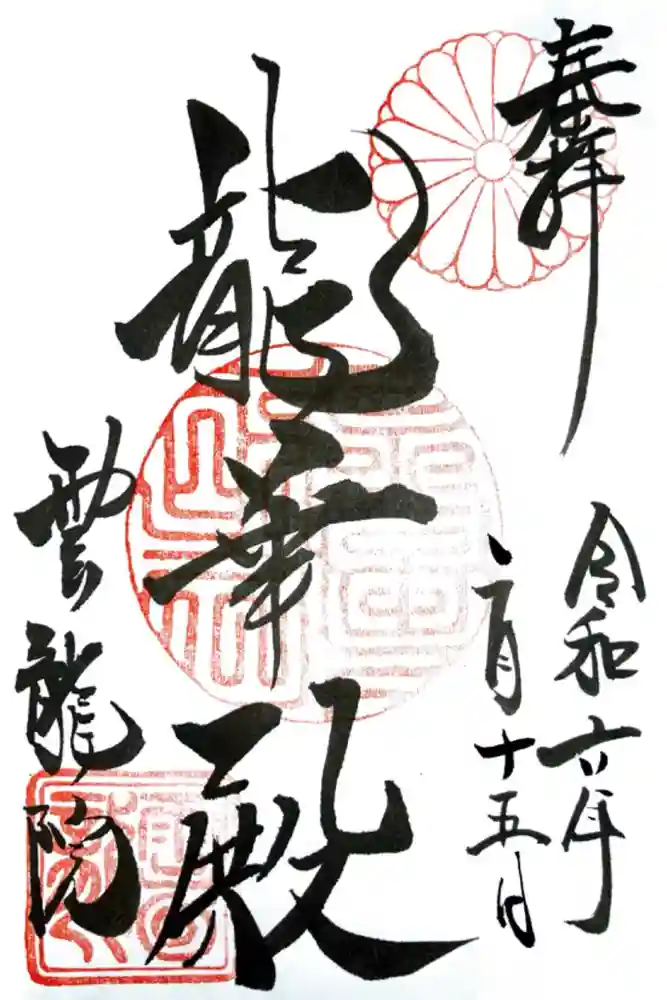 奉拝
令和六年
二月十五日
龍華殿
雲龍院